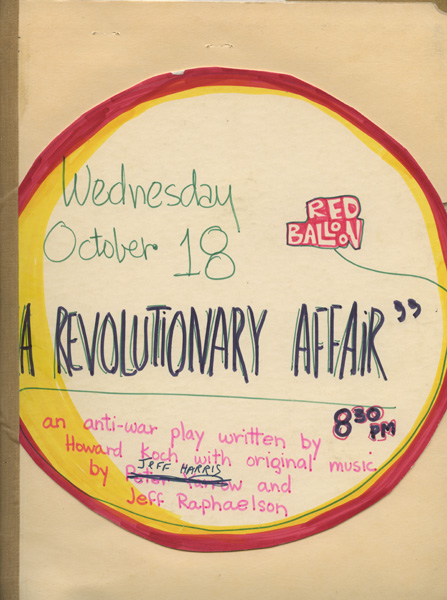 Wednesday
October 18
RED
BALLOON
A REVOLUTIONARY AFFAIR"
8 30 PM
an anti-war play written by
Howard Koch with original music
JEFF HARRIS
by Peter Yarrow and
Jeff Raphaelson